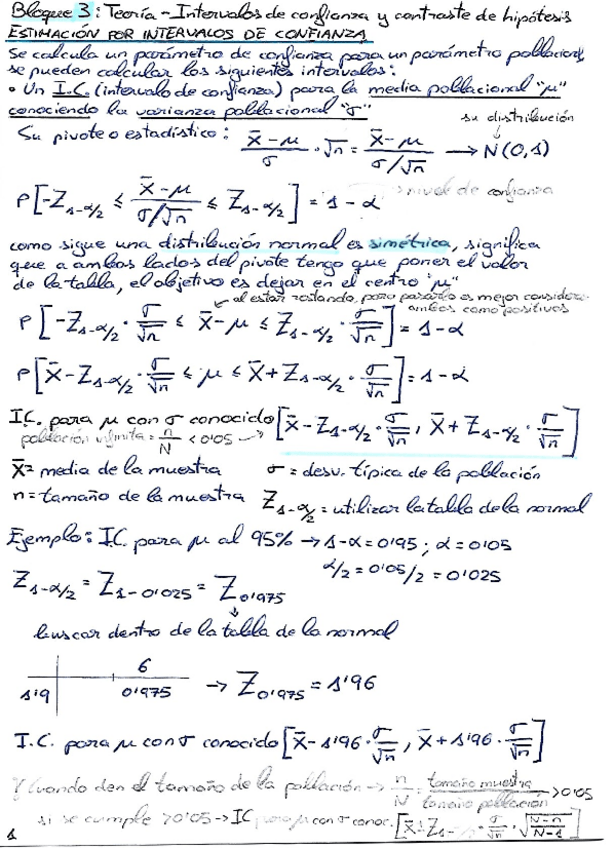 Bloque 3: Teoría - Intervalos de confianza y contraste de hipótesis
ESTIMACIÓN POR INTERVALOS DE CONFIANZA
Se calcula un parámetro de confianza para un parámetro poblacional,
se pueden calcular los siguientes intervalos:
• Un I.C. (intervalo de confianza) para la media poblacional "μ"
conociendo la varianza poblacional "σ"
su distribución
Su pivote o estadístico: (x̄-μ)/σ · √n = (x̄-μ)/(σ/√n) → N(0,1)
P[-Z1-α/2 ≤ (x̄-μ)/(σ/√n) ≤ Z1-α/2] = 1-α → nivel de confianza
como sigue una distribución normal es simétrica, significa
que a ambos lados del pivote tengo que poner el valor
de la tabla, el objetivo es dejar en el centro "μ"
al estar restando, para pasarlo es mejor considerar
ambos como positivos
P[-Z1-α/2 · σ/√n ≤ x̄-μ ≤ Z1-α/2 · σ/√n] = 1-α
P[x̄-Z1-α/2 · σ/√n ≤ μ ≤ x̄+Z1-α/2 · σ/√n] = 1-α
I.C. para μ con σ conocido [x̄-Z1-α/2 · σ/√n, x̄+Z1-α/2 · σ/√n]
población infinita = n/N < 0'05 →
x̄= media de la muestra σ = desv. típica de la población
n= tamaño de la muestra Z1-α/2 = utilizar la tabla de la normal
Ejemplo: I.C. para μ al 95% → 1-α=0'95; α=0'05
α/2 = 0'05/2 = 0'025
Z1-α/2 = Z1-0'025 = Z0'975
↓
buscar dentro de la tabla de la normal
6
1'9 0'975 → Z0'975 = 1'96
I.C. para μ con σ conocido [x̄-1'96 · σ/√n, x̄+1'96 · σ/√n]
Y Cuando den el tamaño de la población → n/N = tamaño muestra/tamaño población > 0'05
si se cumple > 0'05 → IC para μ con σ conoc. [x̄ ± Z1-α/2 · σ/√n · √((N-n)/(N-1))]
1